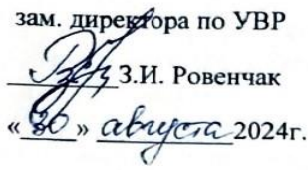 зам. директора по УВР
З.И. Ровенчак
«30» августа 2024г.